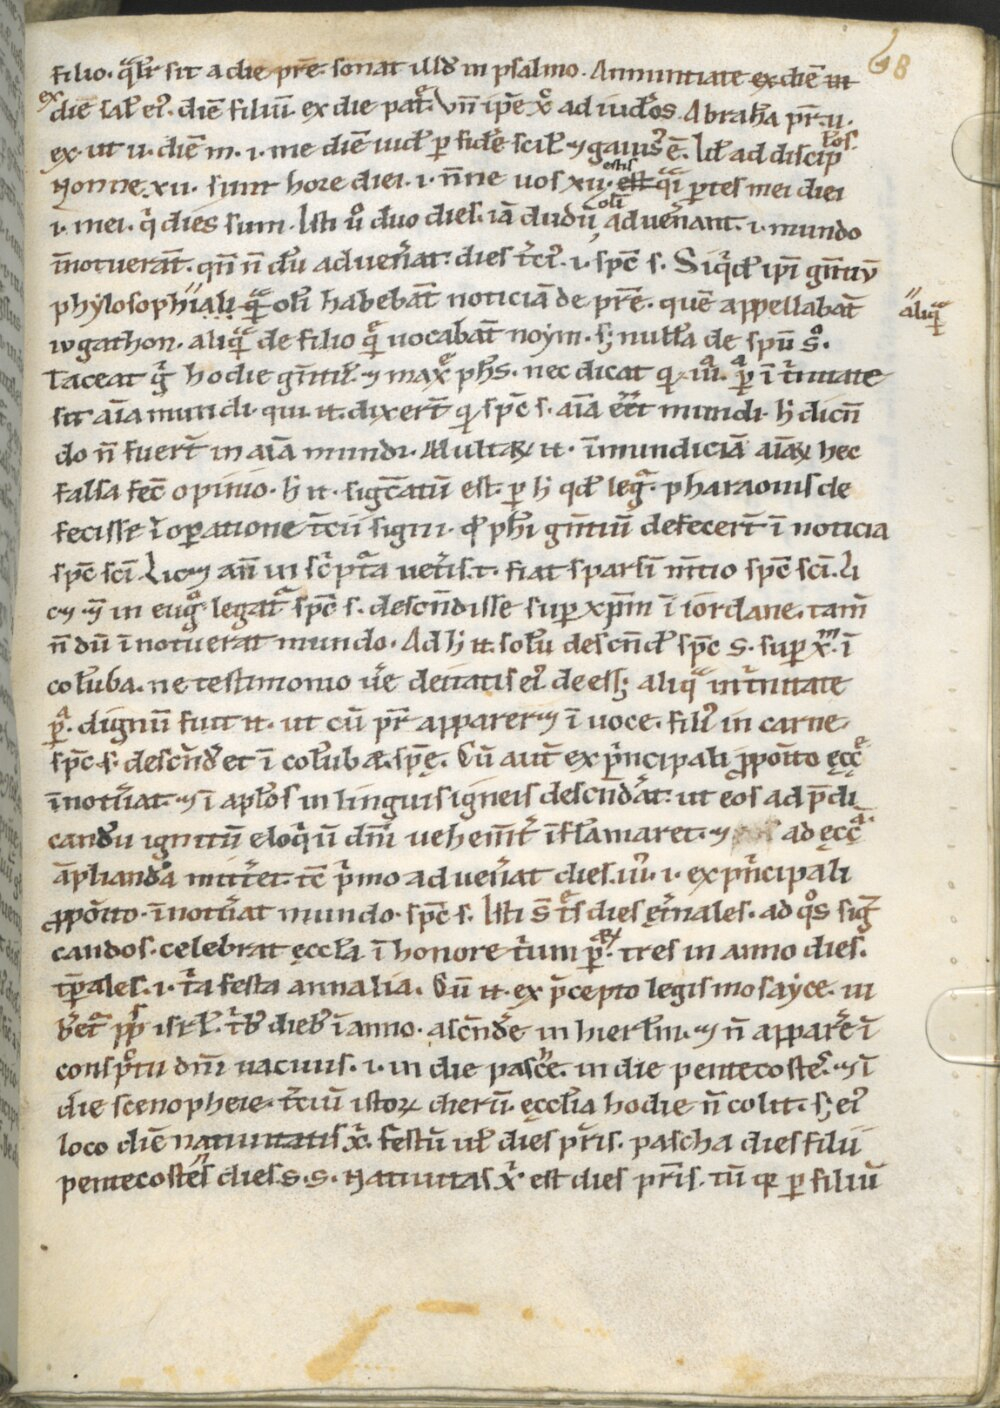 68
filio. q̄lr̄ sit a die pr̄e. sonat illd̄ in psalmo. Annuntiate ex diē in
ex diē sal̄ ei᷒. diē filiū. ex die pat͛. vn̄ ip̄e xͦ ad iudͦos Abrah̄a pr̄ u.
ex. ut u. diē m. i. me diē uid̄ p̄ fidē scil̄. ⁊ gauis᷒ ē. Id̄ ad discip̄los.
Nonne. xii. sunt hore diei. i. n̄ne uos xii. estis qͣi p̄tes mei diei
i. mei. qͥ dies sum. Isti u͛o duo dies. iā dudū olī aduen͛ant. i. mundo
īnotuerāt. qn̄ n̄ du᷒ aduen͛at. dies t͛ci᷒. i. sp̄c s. Siqͥd̄ ip̄i gn̄tiū
phylosophi aliqͣ olī habebāt noticiā de pr̄e. quē appellabāt
aliqͣ
togathon. aliqͣ de filio qͣ uocabāt noym. s; null̄a de spū sͦ.
Taceat g͛ hodie gn̄til᷒. ⁊ maxͤ ph̄s. nec dicat qͥ iiiͣ. p̄ͣ ī tͥnitate
sit aīa mundi. qui tt. dixer̄t qͥ sp̄c s. aīa eēt mundi. h̄ dicn̄
do n̄ fuer̄t in aīa mundi. Multaꝝ tt. īmundiciā aīaꝝ hec
falsa fec̄ opinio. h̄ tt. sig̅catū est. p̄ h̄ qd̄ leg͛. pharaonis de
fecisse ī operatione t͛cii signi. qd̄ ph̄i gn̄tiū defecer̄t ī noticia
sp̄c sc̄i. Lic⁊ an̄ in sc͛pt͛a uet͛is. t. fiat sparsī m̄tio sp̄c sc̄i. Li
c⁊ ⁊ in eug̅ͦ. legat͛ sp̄c s. descn̄disse super xp̄m ī iordane. tam̄
n̄ dū īnotuerat mundo. Ad h̄ tt. sol̄u descn̄d̄ sp̄c s. sup xͫ. ī
col̄uba. ne testimonio u͛e deitatis ei᷒ deess; aliqͣ in tͥnitate
p̄ͣ. dignū fuit tt. ut cū pr̄ apparer⁊ ī uoce. fili᷒ in carne.
sp̄c s. descn̄dēt ī col̄ubæ. sp̄ę. Cū aut̄ ex pͥncipali ꝓpoīto ęcc̄ͤ
īnot͛iat. ⁊ ī apl̄os in linguis igneis descnd͛at. ut eos ad p̄di
candu ignitū eloqͥū dn̄i uehem̄t͛ īflamaret. ⁊ ad ęcc̄ͣ.
āpliandā mitt͛et. tc̄ pͥmo aduen͛at dies. iii᷒. i. ex pͥncipali
ꝓpoīto. īnot͛iat mundo. sp̄c s. Isti s̄ t͛s dies ęt͛nales. ad qͦs sig̅
candos. celebrat ęccl̄a ī honore tͥum p̄ꝝ. tres in anno dies.
tp̄ales. i. t͛a festa annalia. Cū tt. ex p̄cepto legis mosayce. iu
b͛et͛ pp̄s isrl̄. tͥb᷒ dieb᷒ ī anno. ascn̄dē in hierl̄m. ⁊ n̄ apparē ī
conspͨtu dn̄i uacuus. i. in die pascͤe. in die pentecoste͛. ⁊ ī
die scenopheie. t͛ciū istoꝝ dierū. ęccl̄ia hodie n̄ colit. s; ei᷒
loco diē natiuitatis x͛. festū ul̄ dies pr͛is. pascha dies filii
pentecostes dies. s. s. Natiuitas x͛ est dies pr̄is. tū qꝛ p̄ filiū